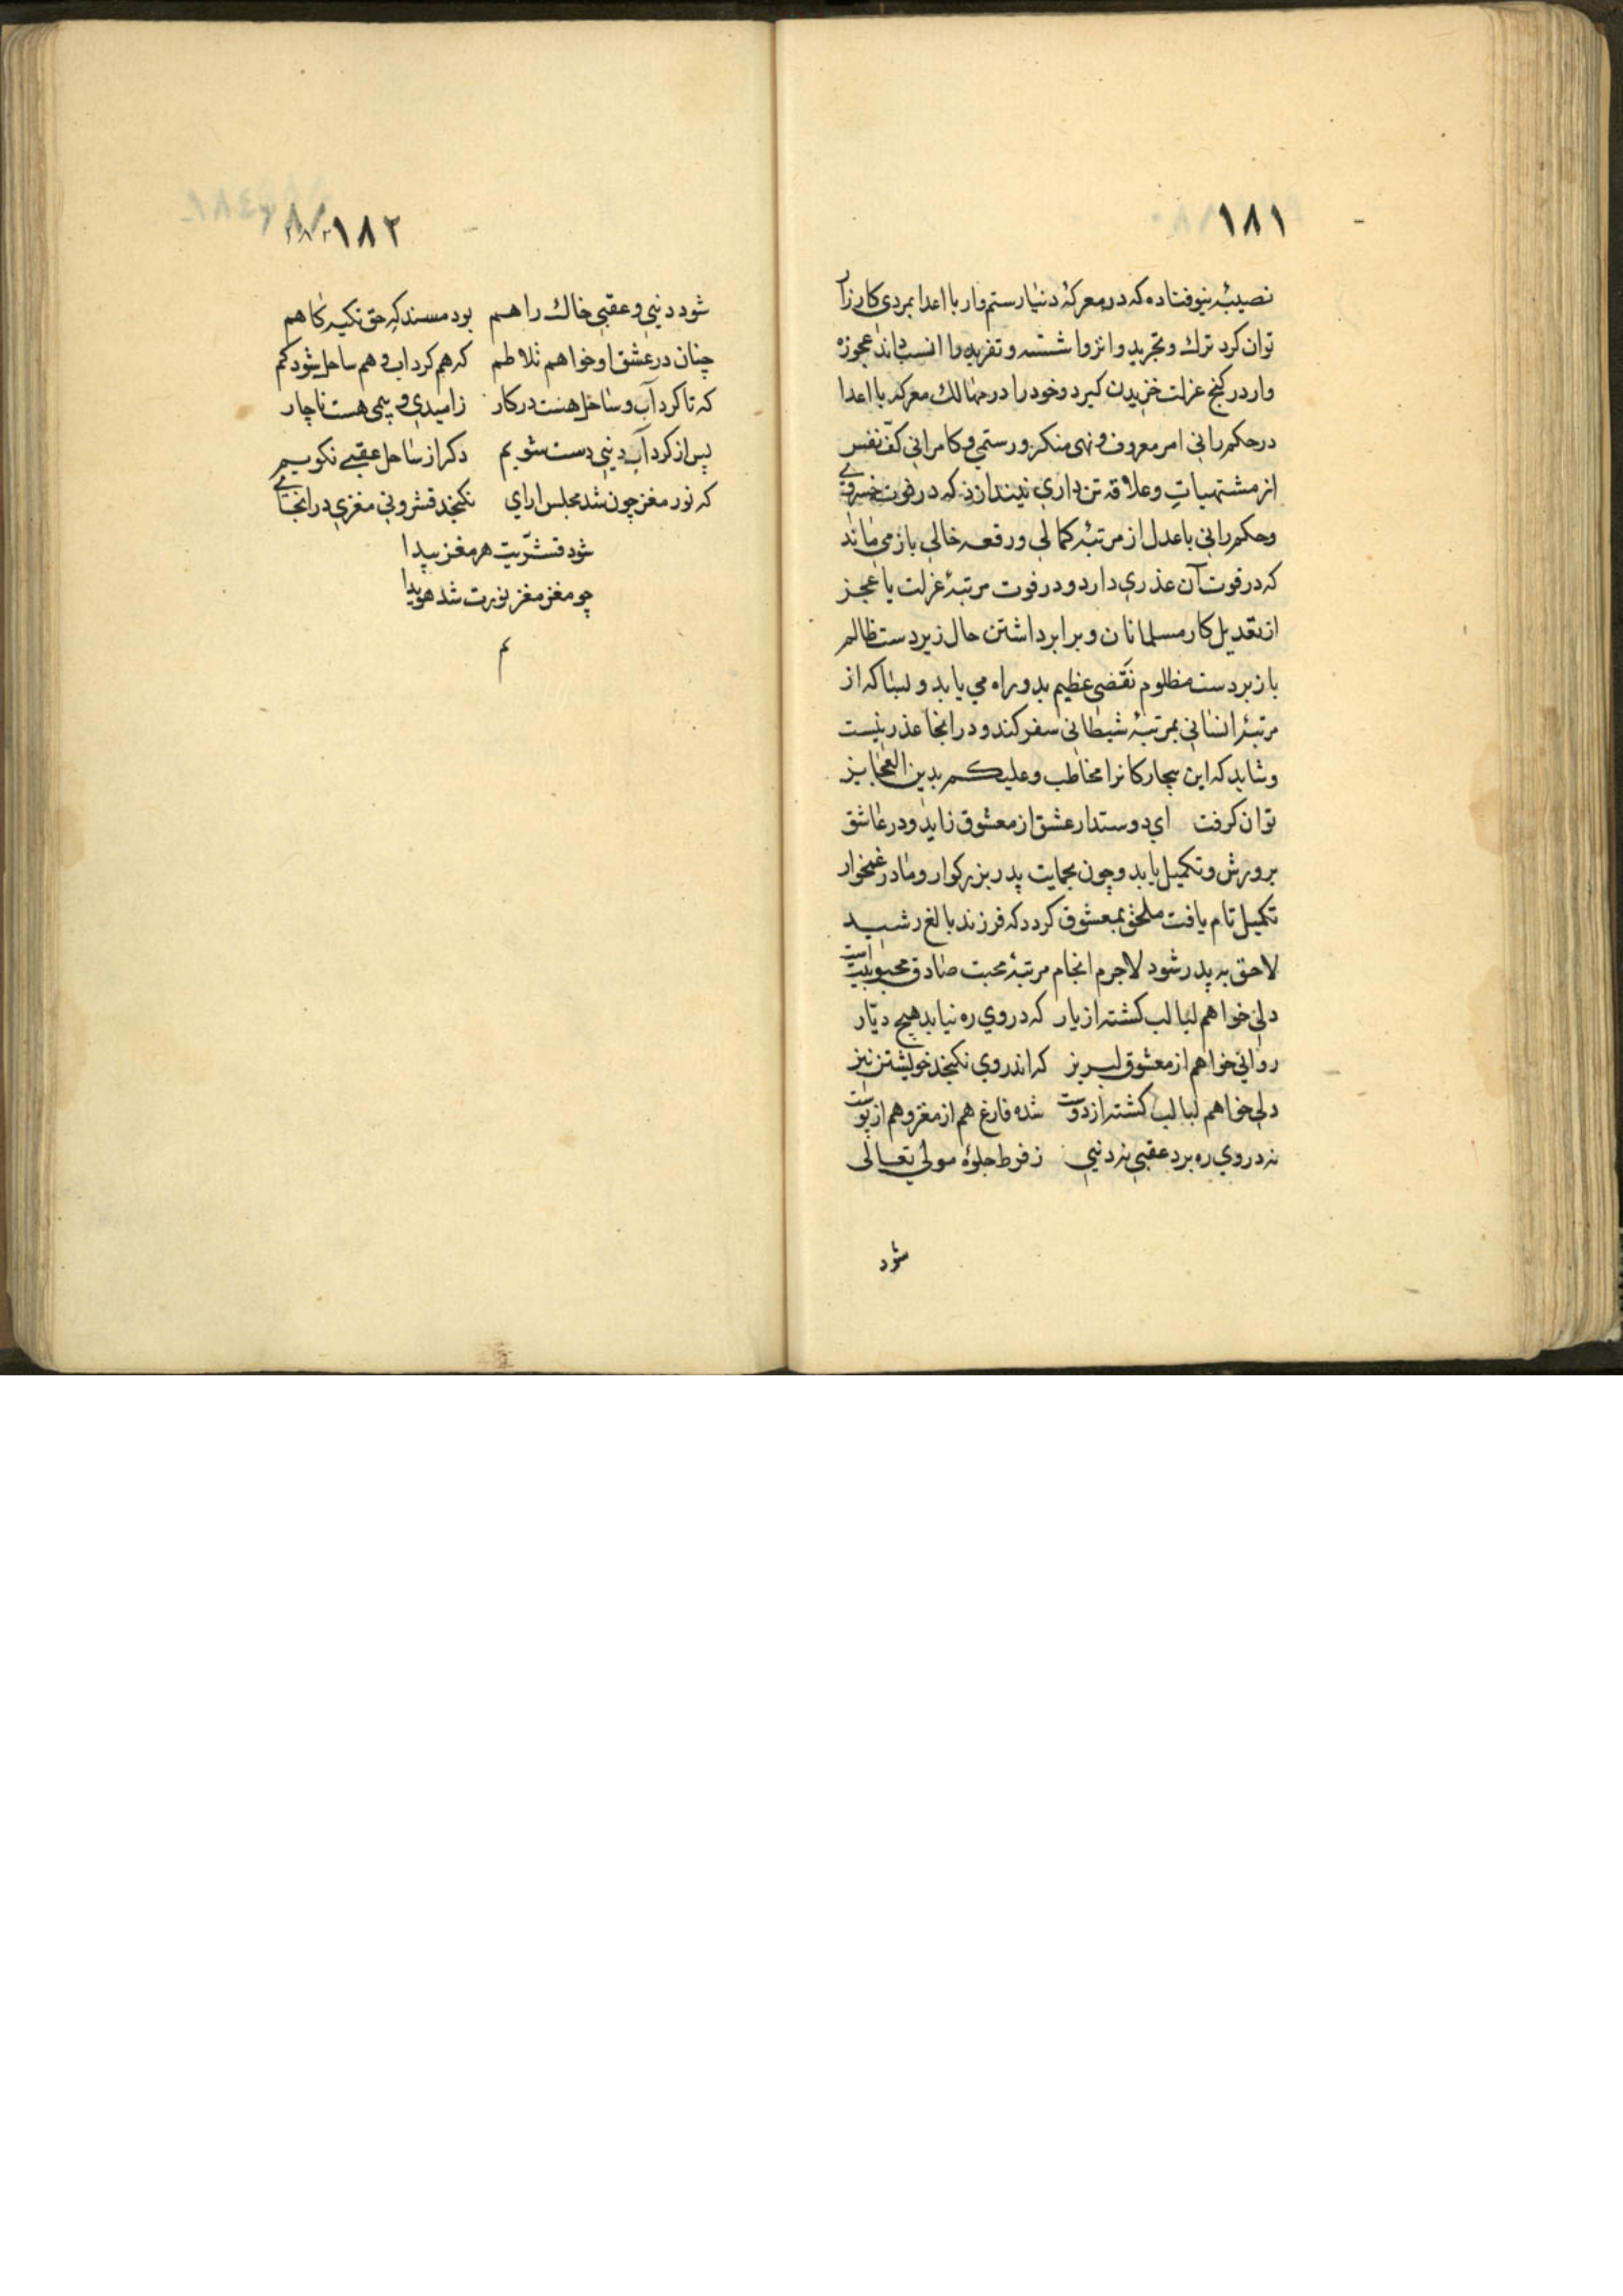 ١٨١
نصیبه نیوفتاده که در معرکهٔ دنیا رستم وار با اعدا بمردی کارزار
توان کرد ترك و تجرید و انزوا شسته و تفرید را انسب داند عجوزه
وار در کنج عزلت خزیدن کیرد و خود را در مهالك معرکه با اعدا
در حکم رانی امر معروف و نهی منکر و رستمی و کامرانی کفّ نفس
از مشتهیات و علاقه تن داری نیندازد که در فوت
وحکم رانی باعدل از مرتبهٔ کمالی ورقعه خالی باز می ماند
که در فوت آن عذری دارد و در فوت مرتبهٔ عزلت با عجز
از تعدیل کار مسلمانان و برابر داشتن حال زیردست ظالم
با زبردست مظلوم نقصی عظیم بدو راه می یابد و بسا که از
مرتبهٔ انسانی بمرتبهٔ شیطانی سفر کند و در انجا عذر نیست
وشاید که این بیچارکانرا مخاطب وعلیکم بدین العجایز
توان کرفت ای دوستدار عشق از معشوق زاید و در عاشق
پرورش و تکمیل یابد و چون بحمایت پدر بزرکوار و مادر غمخوار
تکمیل تام یافت ملحق بمعشوق کردد که فرزند بالغ رشید
لاحق به پدر شود لاجرم انجام مرتبهٔ محبت صادق محبوبیت است
دلی خواهم لبالب کشته از یار که در وی ره نیابد هیچ دیّار
روانی خواهم از معشوق لبریز که اندر وی نکنجد خویشتن نیز
دلی خواهم لبالب کشته از دوست شده فارغ هم از مغز و هم از پوست
نه در وی ره برد عقبی نه دنیی ز فرط جلوهٔ مولی تعالی
شود
١٨٢
شود دنیی و عقبی خاك راهم بود مسند که حق تکیه کاهم
چنان در عشق او خواهم تلاطم که هم کرداب و هم ساحل شود کم
که تا کرداب و ساحل هست در کار ز امیدی و بیمی هست ناچار
پس از کرداب دنیی دست شویم دکر از ساحل عقبی نکویم
که نور مغز چون شد مجلس ارای نکنجد قشر و نی مغزی در انجای
شود قشرّیت هر مغز پیدا
چو مغز مغز نورت شد هویدا
م